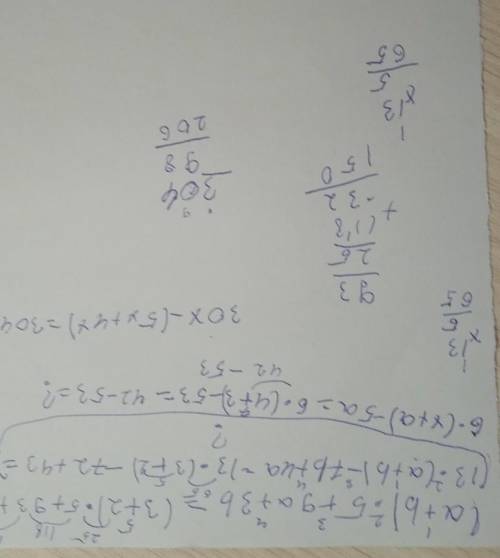 (a+b)·5+9a+3b=(3+2)·5+93+
25
(13·(a+b)-7b+4a=13·(3+2)-72+43=
?
6·(x+a)-5a=6·(4+3)-53=42-53=?
42-53
30x-(5x+4x)=304
13
x5
65
93
25
+32
150
304
98
206
13
x5
65